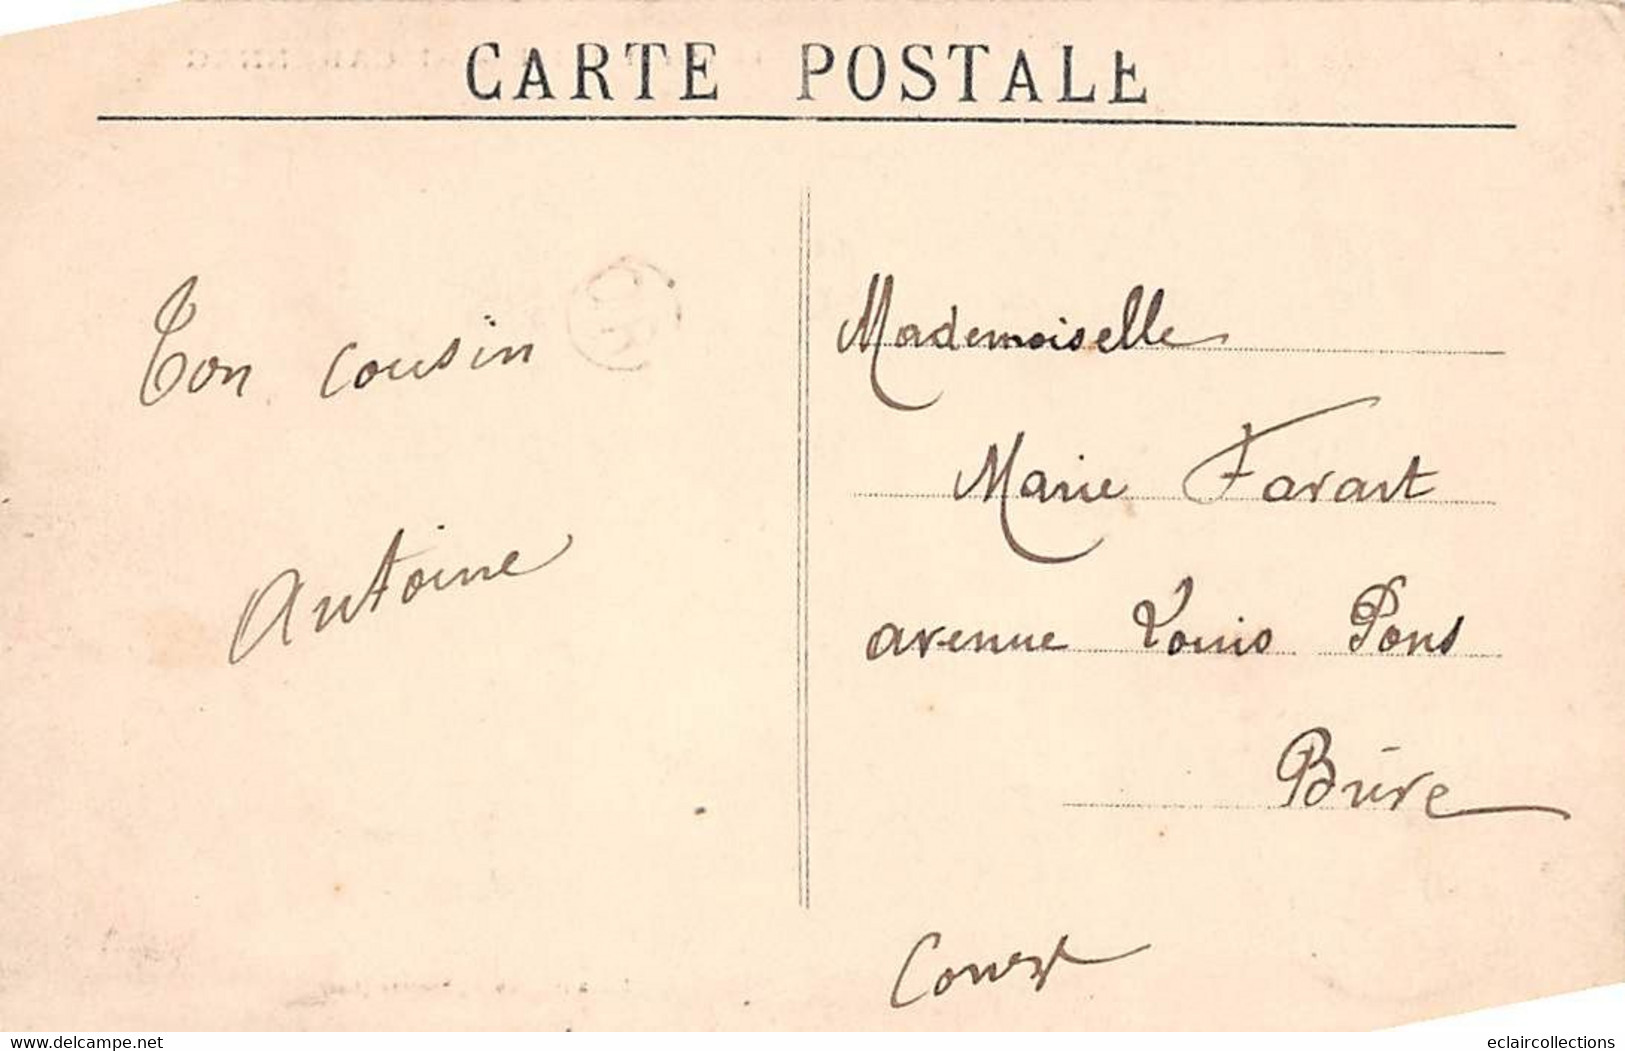 CARTE POSTALE
Ton cousin
Antoine
Mademoiselle
Marie Farart
avenue Louis Pons
Brive
Corrèze
delcampe.net
eclaircollections